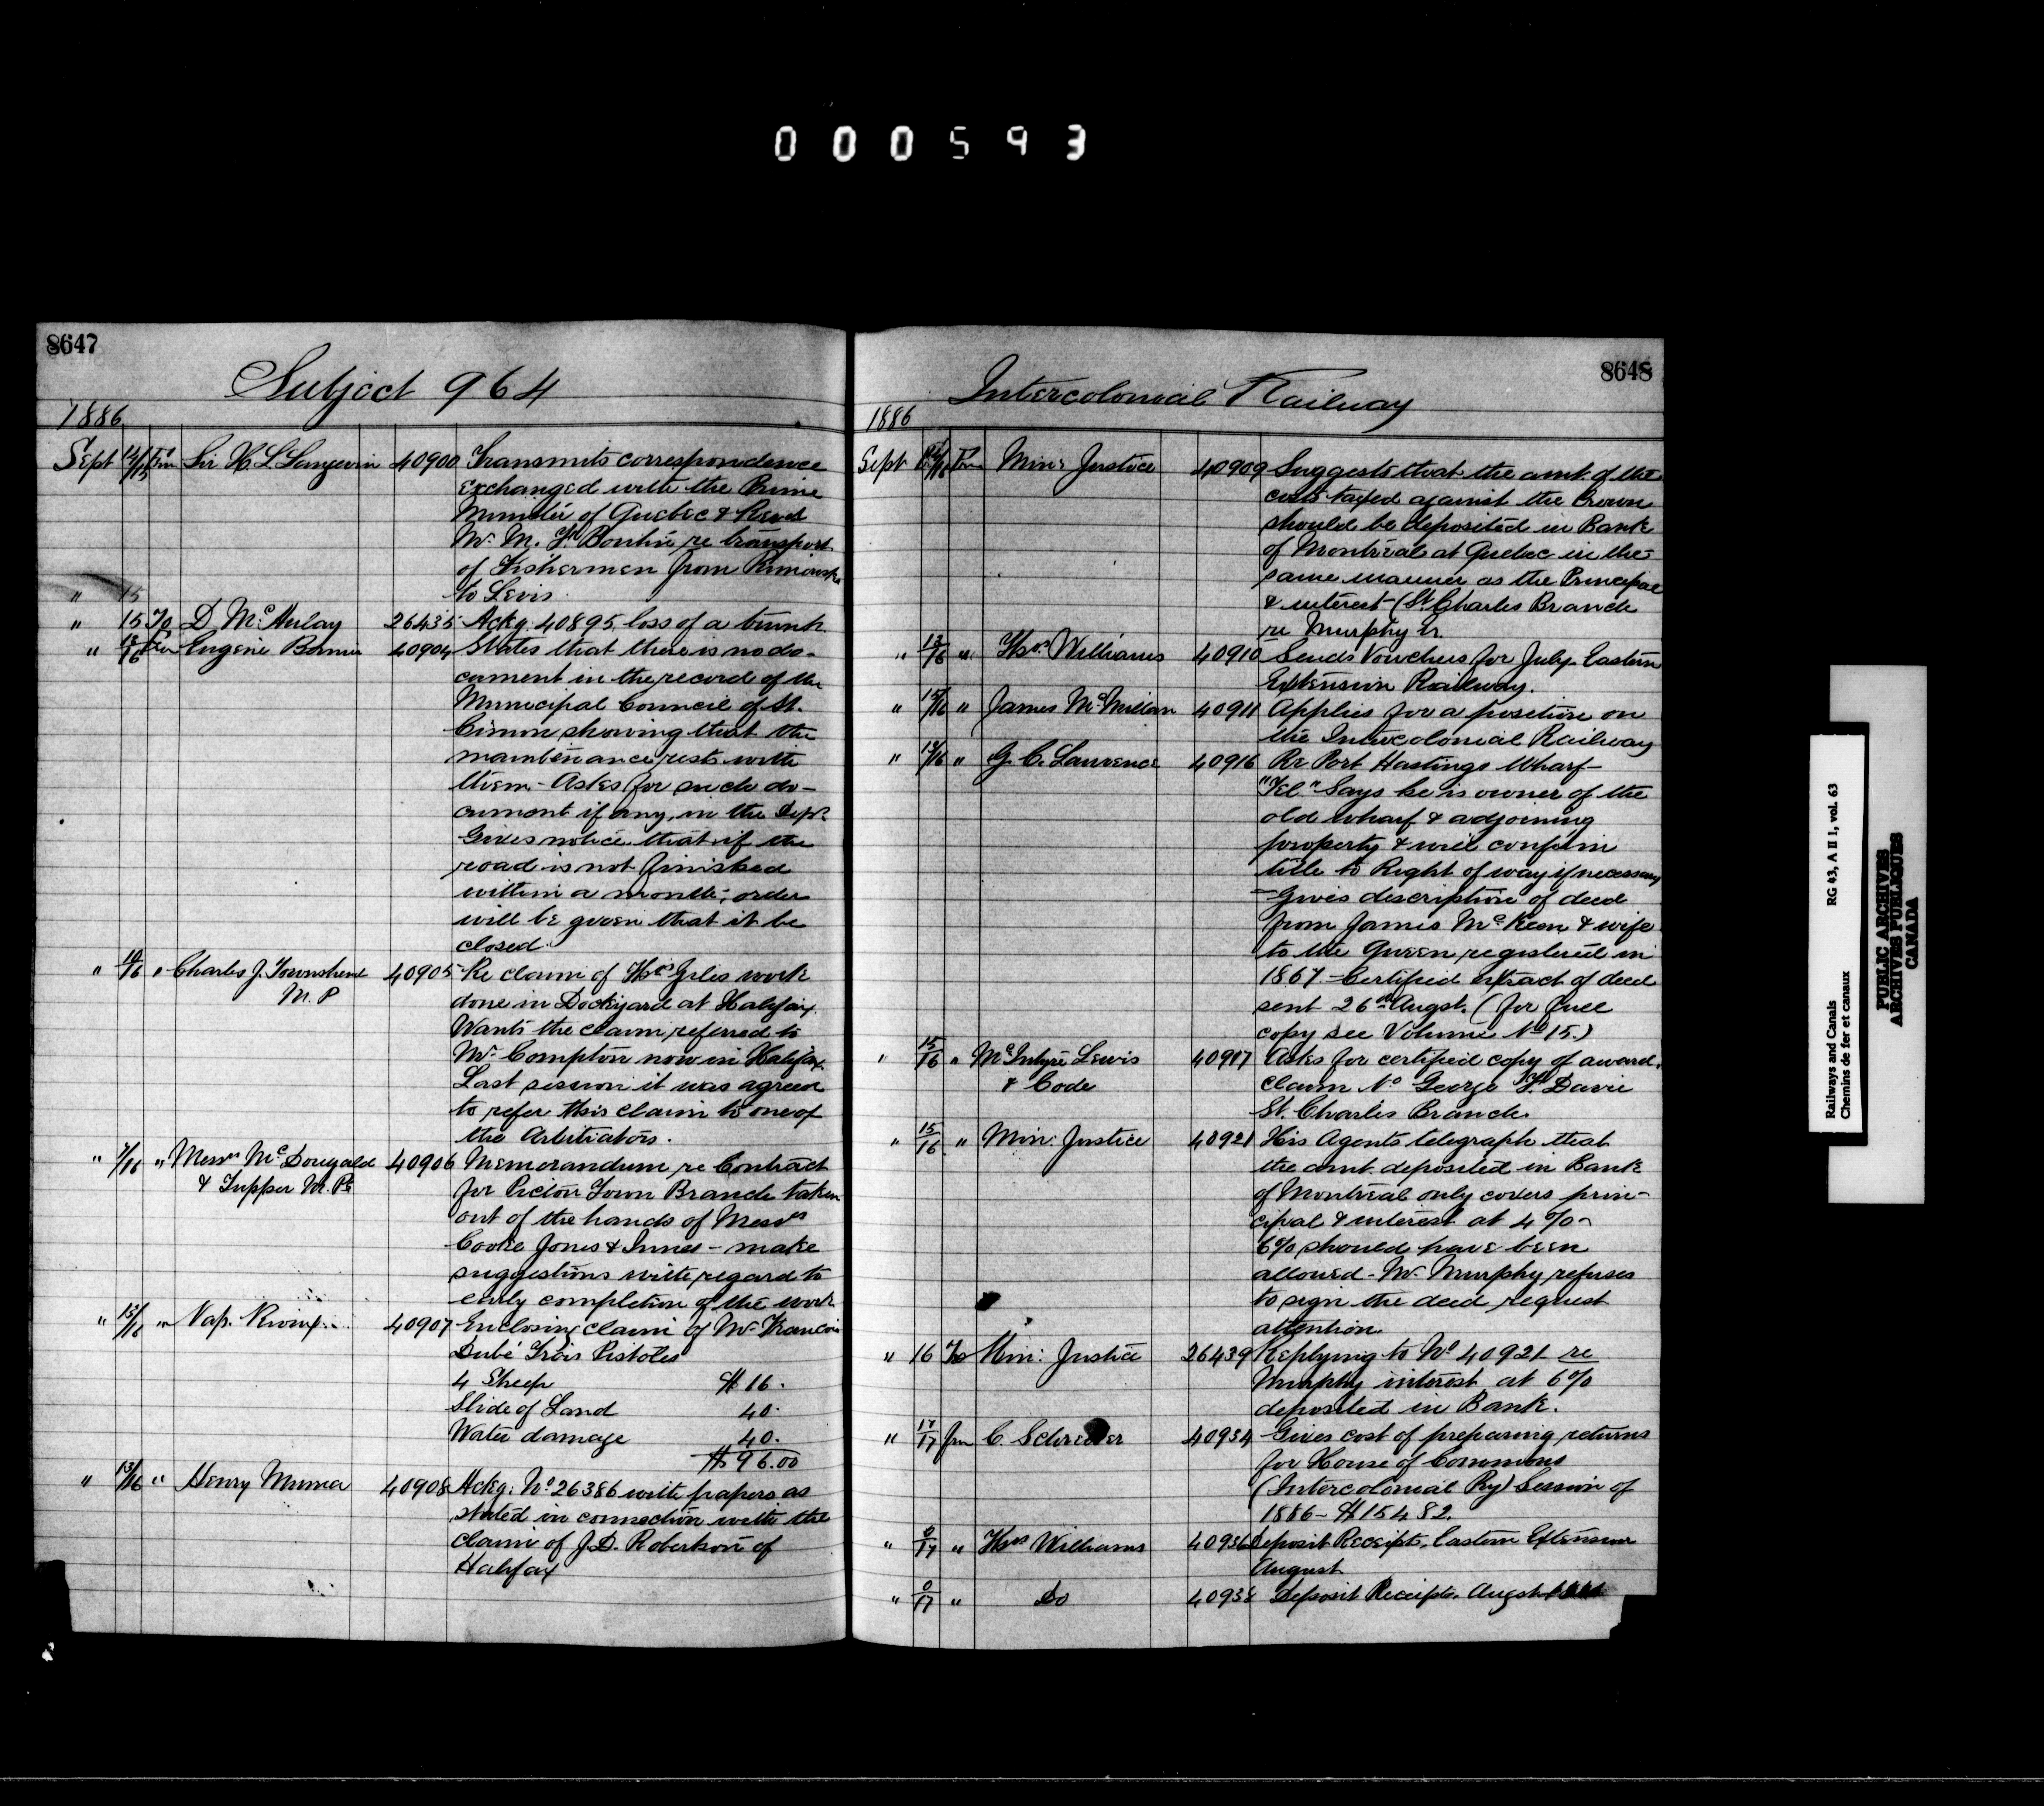 000593
8647
Subject 964
1886
Sept 14/15 Frm Sir H L Langevin 40900 Transmits correspondence
exchanged with the Prime
Minister of Quebec & Revd
Mr. M. F. Boutin re transport
of Fishermen from Rimouski
to Levis.
" 15
" 15 To D McAulay 26435 Ackg. 40895, loss of a trunk.
" 13/16 Frm Eugene 40904 States that there is no do-
cument in the record of the
Municipal Council of St.
Simon showing that the
maintenance rests with
them - Asks for such do-
cument if any, in the Dept.
Gives notice that if the
road is not finished
within a month, order
will be given that it be
closed.
" 10/16 " Charles J. Townshend 40905 Re claim of Thos Giles work
M.P done in Dockyard at Halifax.
Wants the claim referred to
Mr. Compton now in Halifax.
Last session it was agreed
to refer this claim to one of
the Arbitrators.
" 7/16 " Messrs McDougald 40906 Memorandum re Contract
& Tupper M.Ps for Pictou Town Branch taken
out of the hands of Messrs
Cooke Jones & Innes - make
suggestions with regard to
early completion of the work
" 13/16 " Nap. Rioux 40907 Enclosing claim of Mr Francois
Dubé Trois Pistoles
4 Sheep $16.
Slide of Land 40.
Water damage 40.
$96.00
" 13/16 " Henry 40908 Ackg. No 26386 with papers as
stated in connection with the
claim of J.D. Robertson of
Halifax
8648
Intercolonial Railway
1886
Sept /16 Frm Min: Justice 40909 Suggests that the amt. of the
costs taxed against the Crown
should be deposited in Bank
of Montreal at Quebec in the
same manner as the Principal
& interest - (St. Charles Branch
re Murphy
" 13/16 " Thos. Williams 40910 Sends Vouchers for July Eastern
Extension Railway.
" 15/16 " James McMillan 40911 Applies for a position on
the Intercolonial Railway
" 15/16 " G. C. Lawrence 40916 Re Port Hastings Wharf -
"Tel" Says he is owner of the
old wharf & adjoining
property & will confirm
title to Right of way if necessary
- Gives description of deed
from James McKeen & wife
to the Queen registered in
1867 - Certified extract of deed
sent 26th Augst. (for full
copy see Volume No 15.)
" 15/16 " McIntyre Lewis 40917 Asks for certified copy of award,
& Code claim No George T. Davie
St. Charles Branch.
" 15/16 " Min: Justice 40921 His Agents telegraph that
the amt. deposited in Bank
of Montreal only covers prin-
cipal & interest at 4% -
6% should have been
allowed - Mr. Murphy refuses
to sign the deed, request
attention.
" 16 To Min: Justice 26439 Replying to No 40921 re
Murphy interest at 6%
deposited in Bank.
" 17/17 frm C. Schreiber 40934 Gives cost of preparing returns
for House of Commons
(Intercolonial Ry) Session of
1886 - $154 82.
" 0/17 " Thos Williams 40936 Deposit Receipts, Eastern Extension
August
" 0/17 " Do 40938 Deposit Receipts. Augst
Railways and Canals RG 43, A II 1, vol. 63
Chemins de fer et canaux
PUBLIC ARCHIVES
ARCHIVES PUBLIQUES
CANADA